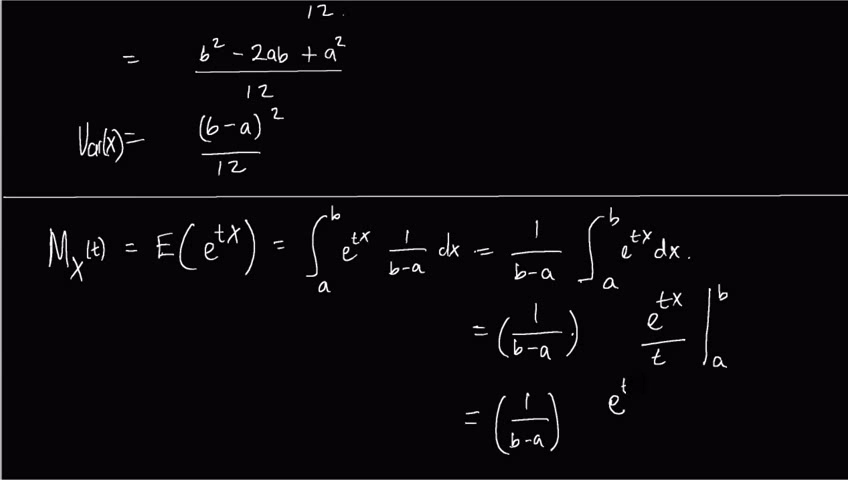 12.
= b² - 2ab + a² / 12
Var(X) = (b-a)² / 12
M_X(t) = E(e^{tX}) = ∫_a^b e^{tx} 1/(b-a) dx = 1/(b-a) ∫_a^b e^{tx} dx.
= (1/(b-a) ·) e^{tx}/t |_a^b
= (1/(b-a)) e^t